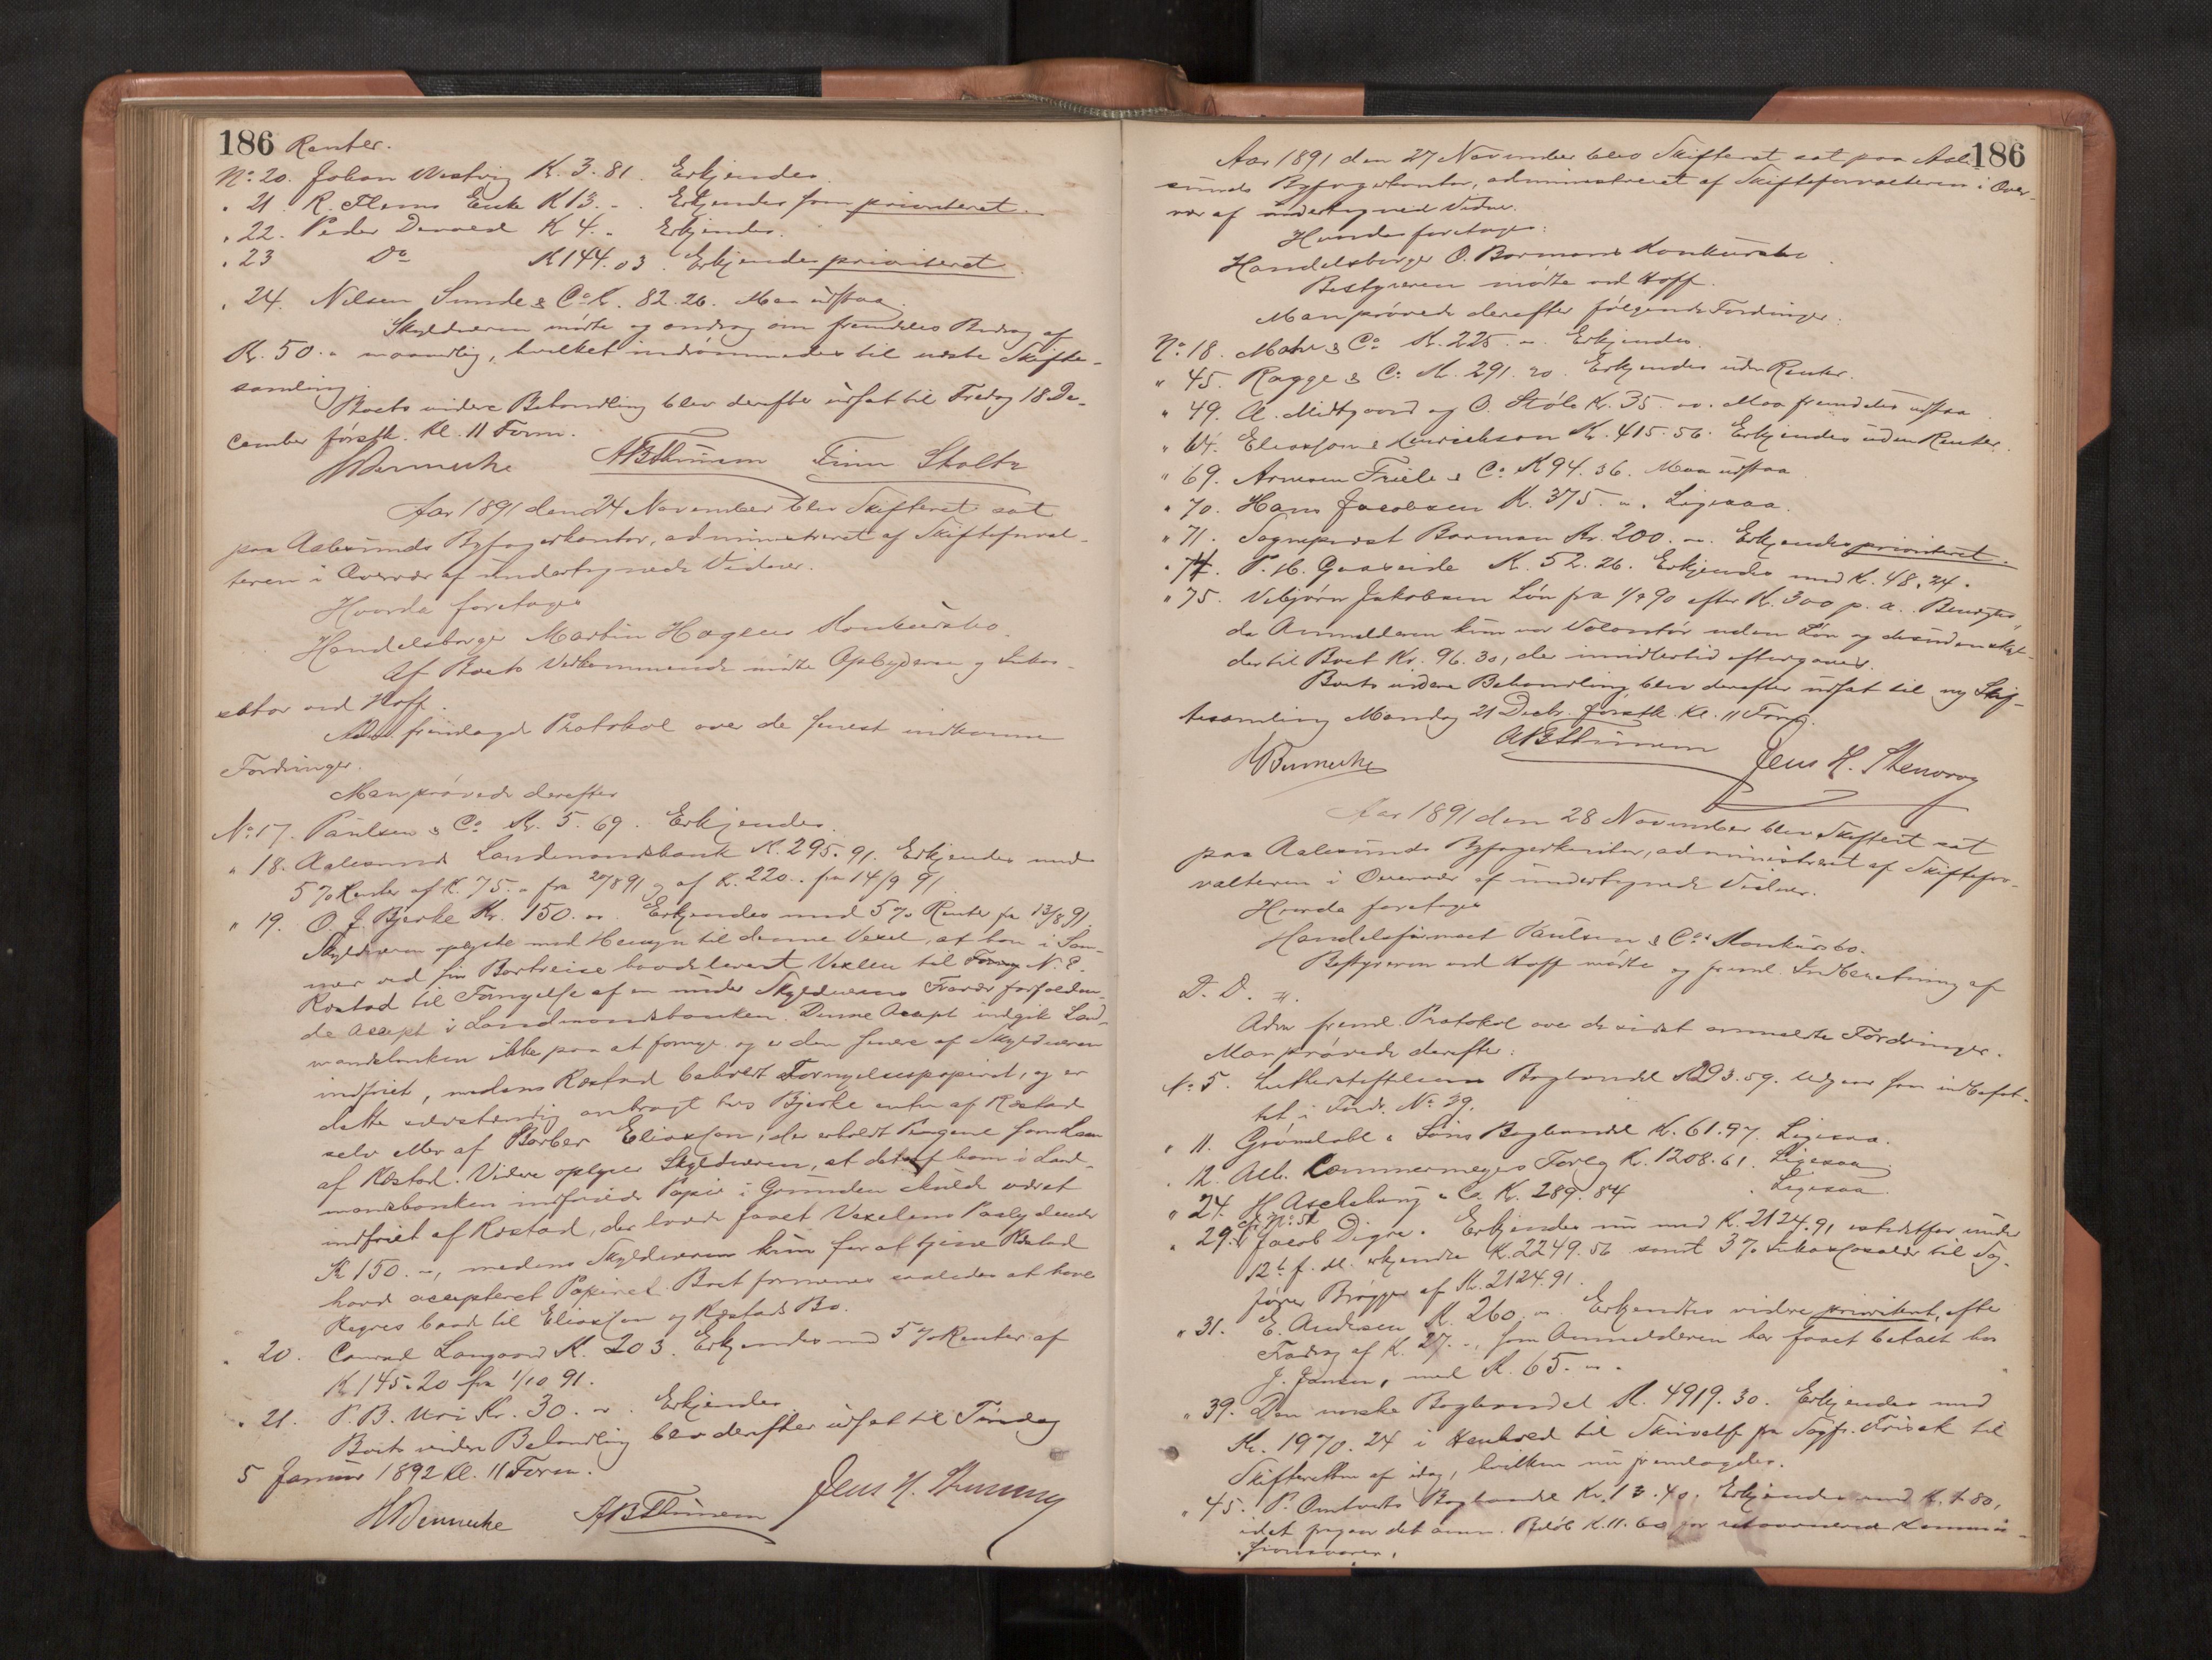 186 Renter.
No 20. Johan Westvig K. 3.81. Erkjendes.
" 21. R. Flems Enke K 13. - . Erkjendes som prioriteret.
" 22. Peder Devold K 4. - Erkjendes.
" 23 Do K 144.03. Erkjendes prioriteret.
" 24. Nilsen Sunde & Co K. 82.26. Maa udstaa.
Skyldneren mødte og androg om fremdeles Bidrag af
Kr. 50. - maanedlig, hvilket indrømmedes til næste Skifte-
samling.
Boets videre Behandling blev derefter udsat til Fredag 18 De-
cember førstk. Kl. 11 Form.
ABThinem Finn Stoltz
Aar 1891 den 24 November blev Skifteret sat
paa Aalesunds Byfogedkontor, administreret af Skifteforval-
teren i Overvær af undertegnede Vidner.
Hvorda foretoges
Handelsborger Martin Hagens Konkursbo.
Af Boets Vedkommende mødte Opbyderen og Inkas-
sator ved Hoff.
Adm. fremlagde Protokol over de senest indkomne
Fordringer.
Man prøvede derefter
No 17. Paulsen & Co Kr. 5.69. Erkjendes.
" 18. Aalesunds Landmandsbank K. 295.91. Erkjendes med
5 % Renter af K. 75. - fra 20/8 91 og af K. 220. - fra 14/9 91.
" 19. O. J. Bjerke Kr. 150. - . Erkjendes med 5 % Renter fra 13/8 91.
Skyldneren oplyste med Hensyn til denne Vexel, at han i Som-
mer ved sin Bortreise havde leveret Vexlen til N. P.
Røstad til Fornyelse af en under Skyldnerens Fravær forfalden-
de Accept i Landmandsbanken. Denne Accept indgik Land-
mandsbanken ikke paa at fornye og er den senere af Skyldneren
indfriet, medens Røstad beholdt Fornyelsespapiret, og er
dette anbragt hos Bjerke enten af Røstad
selv eller af Barber Eliassen, der erholdt Pengene som Laan
af Røstad. Videre oplyser Skyldneren, at det af ham i Land-
mandsbanken indfriede Papir i Grunden skulde været
indfriet af Røstad, der havde faaet Vexelens Paalydende
K 150. -, medens Skyldneren kun for at tjene Røstad
havde accepteret Papiret. Boet formenes saaledes at have
Regres baade til Eliassen og Røstads Bo.
" 20. Conrad Langaard K. 203. Erkjendes med 5 % Renter af
K 145.20 fra 1/10 91.
" 21. P. B. Uri Kr. 30. - . Erkjendes.
Boets videre Behandling blev derefter udsat til Tirsdag
5 Januar 1892 Kl. 11 Form.
ABThinem Jens H.
186
Aar 1891 den 27 November blev Skifteret sat paa Aale-
sunds Byfogedkontor, administreret af Skifteforvalteren i Over-
vær af undertegnede Vidner.
Hvorda foretoges:
Handelsborger O. Bormans Konkursbo.
Bestyreren mødte ved Hoff.
Man prøvede derefter følgende Fordringer:
No 18. Mohr & Co K. 225. - . Erkjendes.
" 45. Ragge & Co K. 291.20. Erkjendes uden Renter.
" 49. A. Midtgaard og O. Støle Kr. 35. - . Maa fremdeles udstaa
" 64. Eliassen & Henrichsen Kr. 415.56. Erkjendes uden Renter.
" 69. Arnesen Friele & Co K 94.36. Maa udstaa
" 70. Hans Jacobsen K. 375. - . Ligesaa.
" 71. Sogneprest Borman Kr. 200. - . Erkjendes prioriteret.
" 74. P. H. Gaaseide K. 52.26. Erkjendes med K. 48.24.
" 75. Vebjørn Jakobsen Løn fra 1/7 90 efter Kr. 300 p. a. Benegtes,
da Anmelderen kun var Volontør uden Løn og desuden skyl-
der til Boet Kr. 96.30, der imidlertid eftergaves.
Boets videre Behandling blev derefter udsat til ny Skif-
tesamling Mandag 21 Decbr. førstk. Kl. 11 Form.
ABThinem Jens H.
Aar 1891 den 28 November blev Skifteret sat
paa Aalesunds Byfogedkontor, administreret af Skiftefor-
valteren i Overvær af undertegnede Vidner.
Hvorda foretoges
Handelsfirmaet Paulsen & Co's Konkursbo.
Bestyreren ved Hoff mødte og freml. Indberetning af
D. D. #.
Adm. freml. Protokol over de sidst anmeldte Fordringer.
Man prøvede derefter:
No 5. Lutherstiftelsens Boghandel K 293.59. Udgaar som indbefat-
tet i Fordr. No 39.
" 11. Grøndahl & Søns Boghandel K. 61.97. Ligesaa.
" 12. Alb. Cammermeyers Forlag K. 1208.61. Ligesaa
" 24. H. Aschehoug & Co. K. 289.84 Ligesaa.
" 29. cfr. No 51 Jacob Digre. Erkjendes nu med K. 2124.91 istedetfor under
12te f. M. erkjendte K. 2249.56 samt 3 % Inkassosalær til Sag-
fører Brøgger af Kr. 2124.91.
" 31. E. Andersen K. 260. - . Erkjendtes videre prioriteret, efter
Fradrag af K. 27. -, som Anmelderen har faaet betalt hos
J. Jansen, med K. 65. - .
" 39. Den norske Boghandel K. 4919.30. Erkjendes med
Kr. 1970.24 i Henhold til Skrivelse fra Sagf. Frisak til
Skifteretten af idag, hvilken nu fremlagdes.
" 45. P. Omtvedts Boghandel Kr. 13.40. Erkjendes med K. 1.80,
idet fragaar det anm. Beløb K. 11.60 for returnerede Kommis-
sionsvarer.